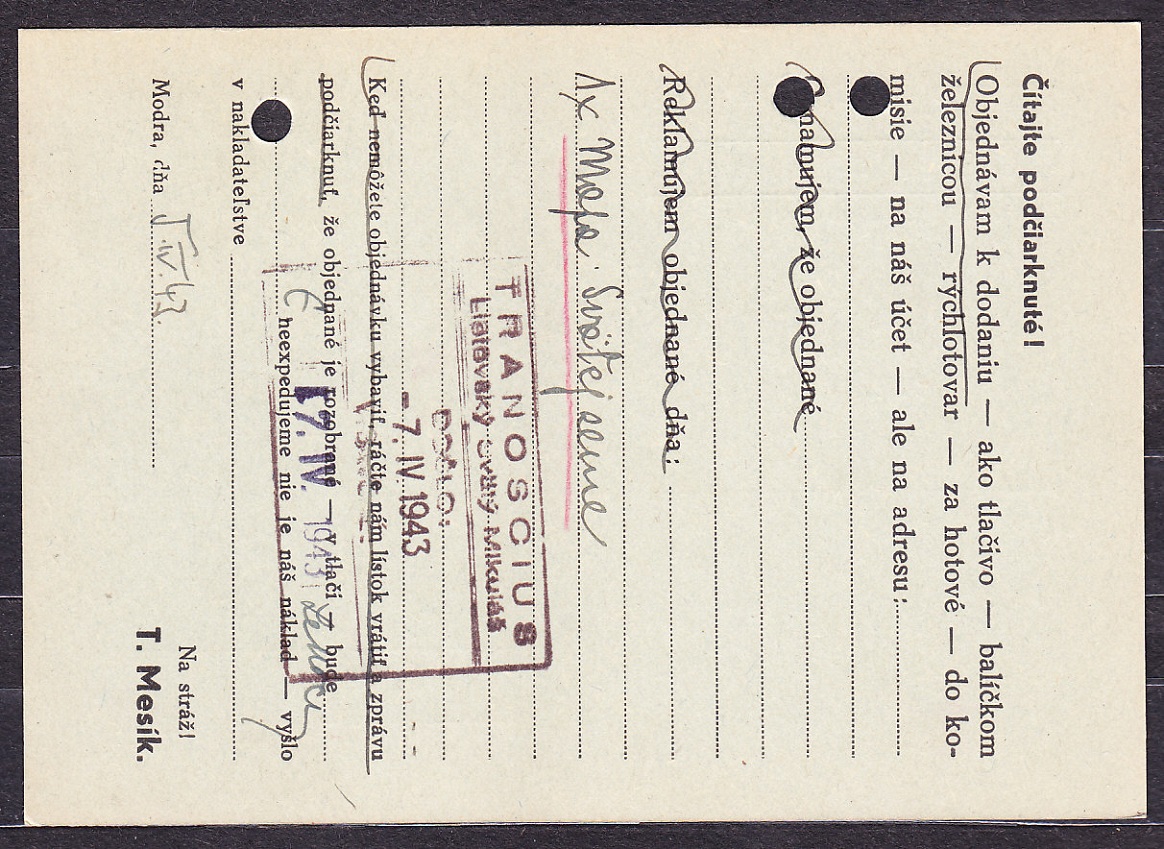 Čítajte podčiarknuté!
Objednávam k dodaniu — ako tlačivo — balíčkom
železnicou — rýchlotovar — za hotové — do ko-
misie — na náš účet — ale na adresu:
nalnujem, že objednané
Reklamujem objednané dňa:
1x Mapa: Svätej zeme
TRANOSCIUS
Liptovský Svätý Mikuláš
DOŠLO:
-7. IV. 1943
Keď nemôžete objednávku vybaviť, ráčte nám lístok vrátiť a zprávu
podčiarknuť, že objednané je rozobrané — v tlači bude
17. IV. 1943
heexpedujeme nie je náš náklad — vyšlo
v nakladateľstve
Modra, dňa 5.IV.43.
Na stráž!
T. Mesík.